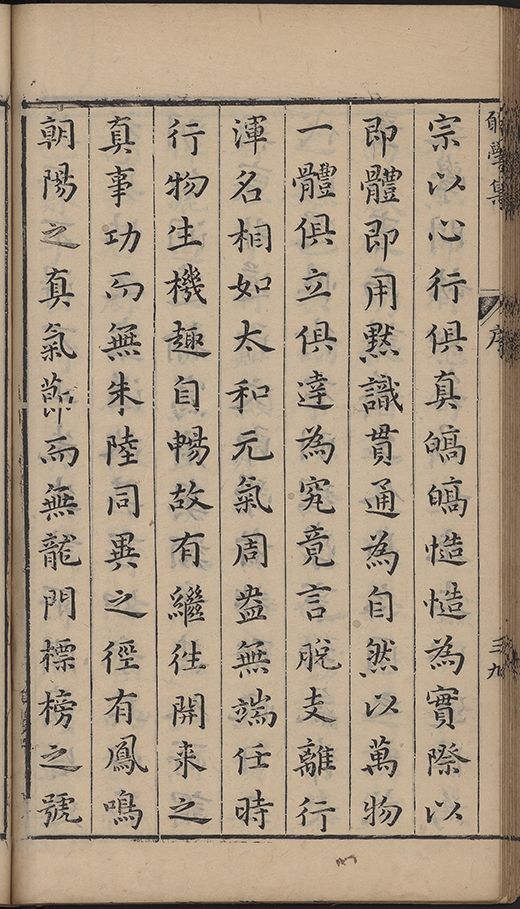 學集
序
三九
宗以心行俱真皜皜慥慥為實際以
即體即用默識貫通為自然以萬物
一體俱立俱達為究竟言脫支離行
渾名相如太和元氣周盎無端任時
行物生機趣自暢故有繼徃開来之
真事功而無朱陸同異之徑有鳳鳴
朝陽之真氣節而無龍門標榜之號